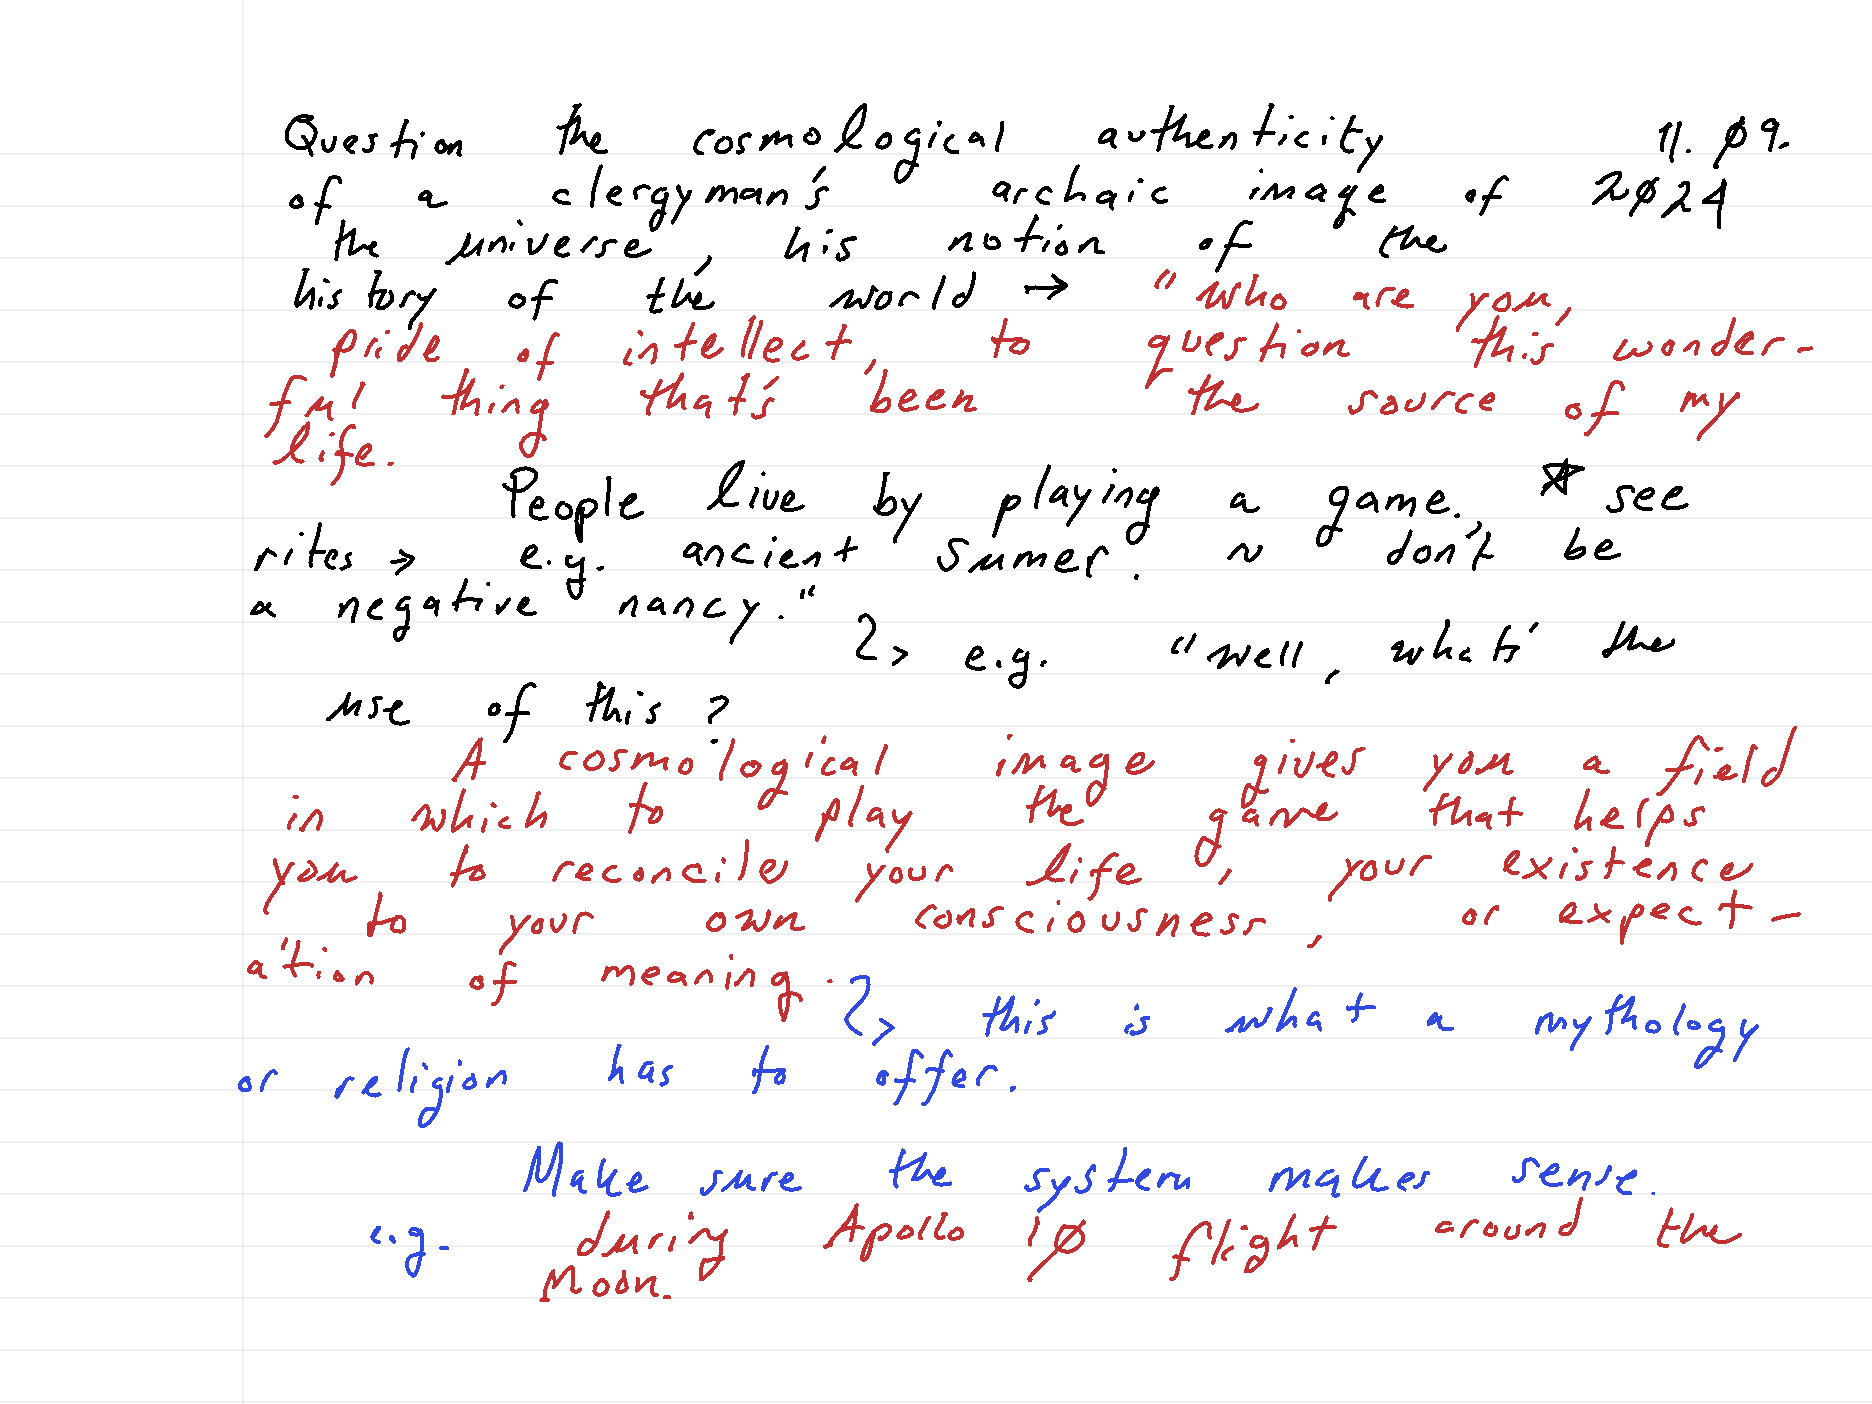 Question the cosmological authenticity 11. Ø9.
of a clergyman's archaic image of 2Ø24
the universe, his notion of the
history of the world → "who are you,
pride of intellect, to question this wonder-
ful thing that's been the source of my
life.
People live by playing a game. ☆ see
rites → e.g. ancient Sumer. ~ don't be
a negative nancy."
↳ e.g. "well, what's the
use of this?
A cosmological image gives you a field
in which to play the game that helps
you to reconcile your life, your existence
to your own consciousness, or expect-
ation of meaning.
↳ this is what a mythology
or religion has to offer.
Make sure the system makes sense.
e.g. during Apollo 1Ø flight around the
Moon.